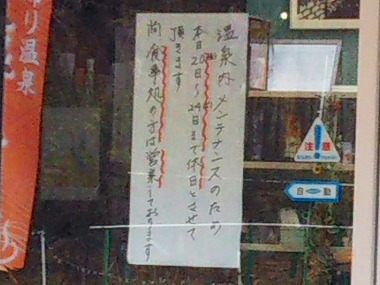 温泉内メンテナンスのため
本日20日～24日まで休日とさせて
頂きます
尚食事処の方は営業しております
注意
自動
り温泉